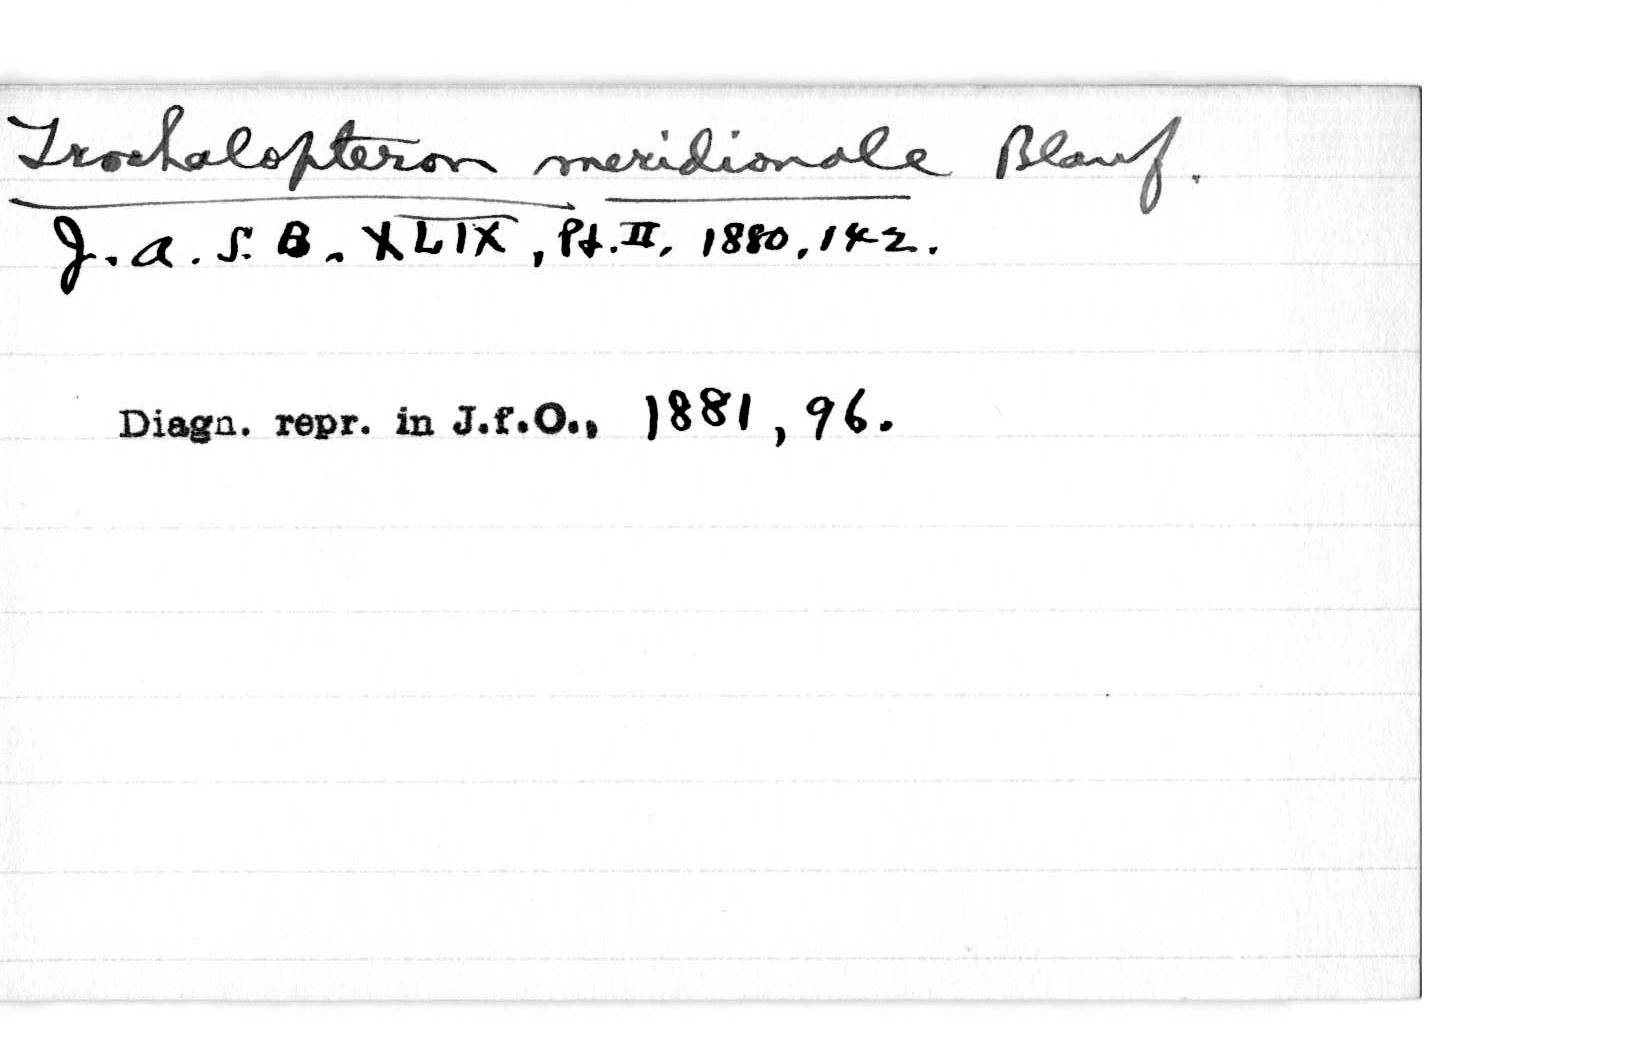 Trochalopteron meridionale Blanf.
J. A. S. B. XLIX, Pt. II, 1880, 142.
Diagn. repr. in J.f.O., 1881, 96.